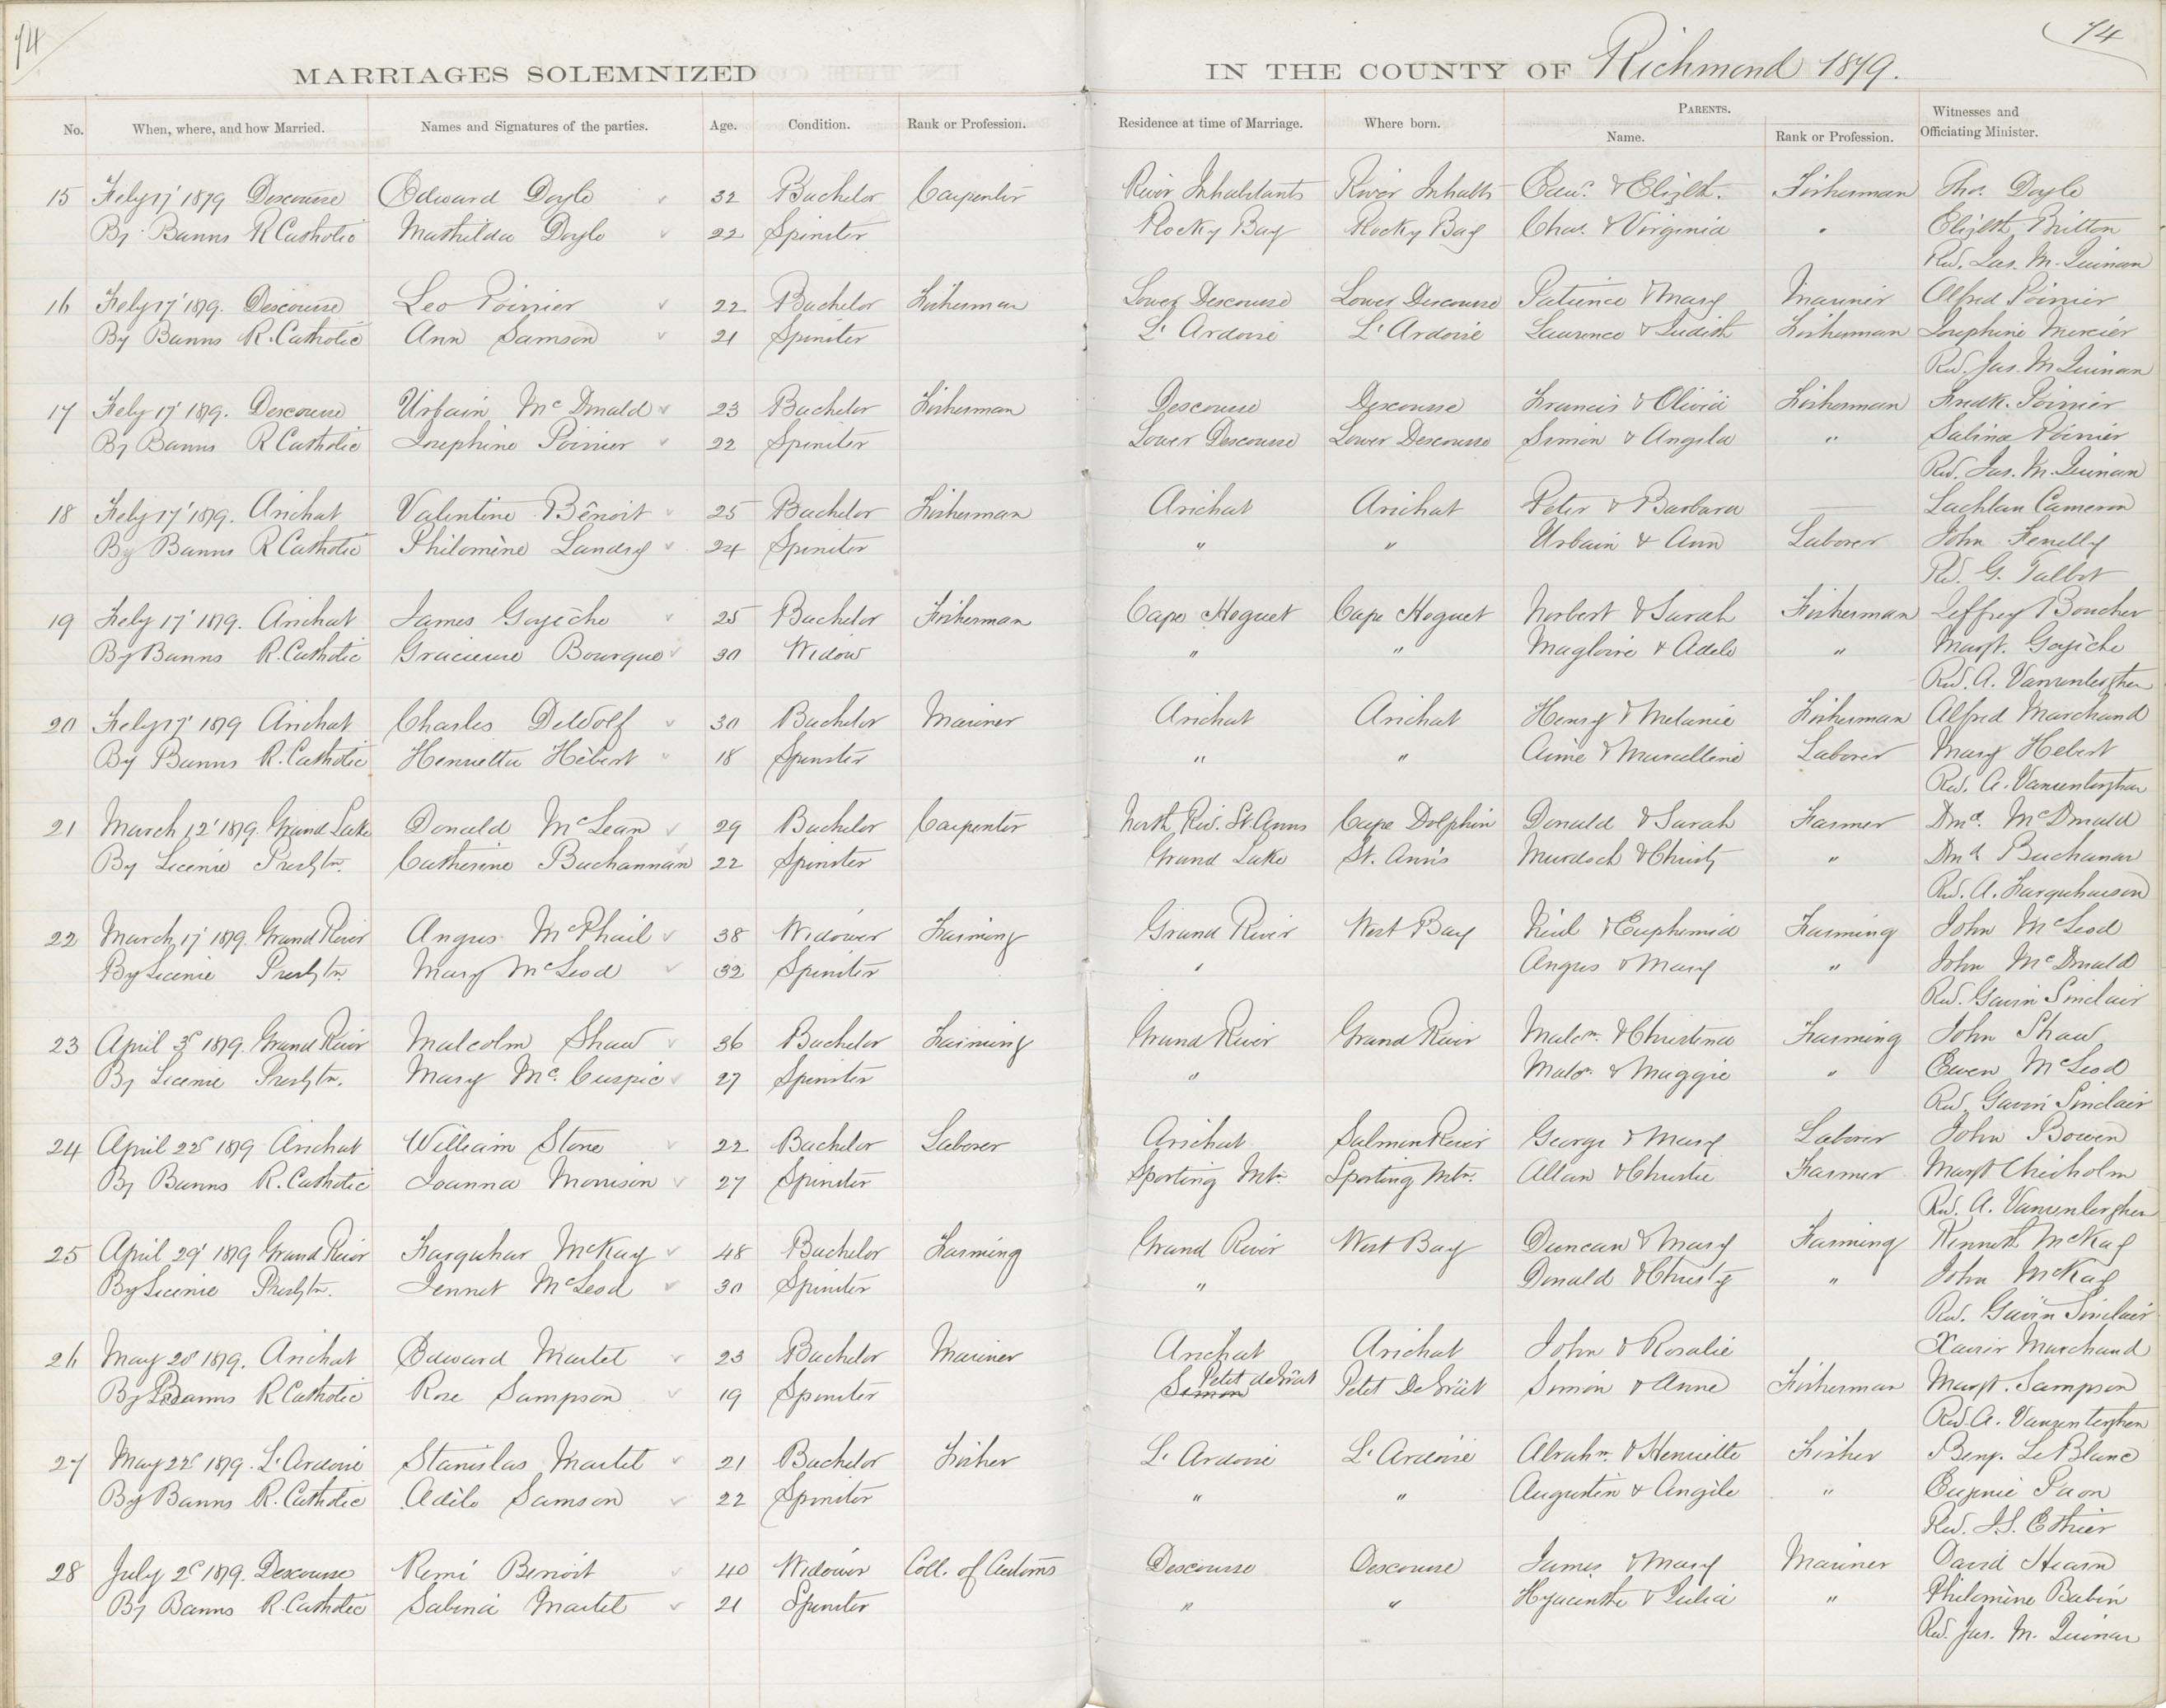 74
74
MARRIAGES SOLEMNIZED IN THE COUNTY OF Richmond 1879.
No. When, where, and how Married. Names and Signatures of the parties. Age. Condition. Rank or Profession. Residence at time of Marriage. Where born. PARENTS. Name. Rank or Profession. Witnesses and Officiating Minister.
15 Feby 17' 1879 Descousse Edward Doyle 32 Bachelor Carpenter River Inhabitants River Inhabts Edwd. & Elizth. Fisherman Thos. Doyle
By Banns R Catholic Mathilda Doyle 22 Spinster Rocky Bay Rocky Bay Chas. & Virginia " Elizth Britton
Rev. Jas. M. Quinan
16 Feby 17' 1879. Descousse Leo Poirier 22 Bachelor Fisherman Lower Descousse Lower Descousse Patience & Mary Mariner Alfred Poirier
By Banns R. Catholic Ann Samson 21 Spinster L'Ardoise L'Ardoise Laurence & Judith Fisherman Josephine Mercier
Rev. Jas. M Quinan
17 Feby 17' 1879. Descousse Urbain McDonald 23 Bachelor Fisherman Descousse Descousse Francis & Olivia Fisherman Fredk. Poirier
By Banns R Catholic Josephine Poirier 22 Spinster Lower Descousse Lower Descousse Simon & Angela " Sabina Poirier
Rev. Jas. M. Quinan
18 Feby 17' 1879. Arichat Valentine Bênoit 25 Bachelor Fisherman Arichat Arichat Peter & Barbara — Lachlan Cameron
By Banns R Catholic Philomène Landry 24 Spinster " " Urbain & Ann Laborer John Fenelly
Rev. G. Talbot
19 Feby 17' 1879. Arichat James Goyèche 25 Bachelor Fisherman Cape Hoguet Cape Hoguet Norbert & Sarah Fisherman Jeffrey Boucher
By Banns R. Catholic Gracieuse Bourque 30 Widow " " Magloire & Adele " Margt. Goyèche
Rev. A. Vanrenterghen
20 Feby 17' 1879 Arichat Charles DeWolf 30 Bachelor Mariner Arichat Arichat Henry & Melanie Fisherman Alfred Marchand
By Banns R. Catholic Henrietta Hèbert 18 Spinster " " Aimé & Marcelline Laborer Mary Hebert
Rev. A. Vanrenterghen
21 March 12' 1879. Grand Lake Donald McLean 29 Bachelor Carpenter North Riv. St. Anns Cape Dolphin Donald & Sarah Farmer Dond. McDonald
By License Presbytn. Catherine Buchannan 22 Spinster Grand Lake St. Ann's Murdoch & Christy " Dond Buchanan
Rev. A. Farquharson
22 March 17' 1879. Grand River Angus McPhail 38 Widower Farming Grand River West Bay Neil & Euphemia Farming John McLeod
By License Presbytn. Mary McLeod 32 Spinster " Angus & Mary " John McDonald
Rev. Gavin Sinclair
23 April 3d 1879. Grand River Malcolm Shaw 36 Bachelor Farming Grand River Grand River Malcm. & Christena Farming John Shaw
By License Presbytn. Mary McCuspic 27 Spinster " Malcm. & Maggie " Ewen McLeod
Rev. Gavin Sinclair
24 April 22d 1879 Arichat William Stone 22 Bachelor Laborer Arichat Salmon River George & Mary Laborer John Bowen
By Banns R. Catholic Joanna Morrison 27 Spinster Sporting Mtn. Sporting Mtn. Allan & Christie Farmer Margt Chisholm
Rev. A. Vanrenterghen
25 April 29' 1879 Grand River Farquhar McKay 48 Bachelor Farming Grand River West Bay Duncan & Mary Farming Kenneth McKay
By License Presbytn. Jennet McLeod 30 Spinster " Donald & Christy " John McKay
Rev. Gavin Sinclair
26 May 20' 1879. Arichat Edward Martet 23 Bachelor Mariner Arichat Arichat John & Rosalie Xavier Marchand
By Banns R Catholic Rose Sampson 19 Spinster Simon Petit deGrât Petit DeGrât Simon & Anne Fisherman Margt. Sampson
Rev. A. Vanrenterghen
27 May 22d 1879. L'Ardoise Stanislas Martet 21 Bachelor Fisher L'Ardoise L'Ardoise Abrahm. & Henriette Fisher Benj. LeBlanc
By Banns R. Catholic Adèle Samson 22 Spinster " " Augustin & Angèle " Eugenie Paon
Rev. J.S. Ethier
28 July 2d 1879. Descousse Remi Benoit 40 Widower Coll. of Customs Descousse Descousse James & Mary Mariner David Hearn
By Banns R. Catholic Sabina Martet 21 Spinster " " Hyacinthe & Julia " Philomène Babin
Rev. Jas. M. Quinan